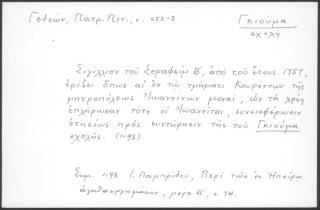 Γεδεών, Πατρ. Πιν., σ. 652-3
Γκιούμα
σχολή
Σιγίλλιον τοῦ Σεραφείμ Β΄, ἀπό τοῦ ἔτους 1757,
ὁρίζει ὅπως αἱ ἐν τῷ τμήματι Κουρέντων τῆς
μητροπόλεως Ἰωαννίνων μοναί, ὧν τά χρέη
ἐπλήρωσαν τότε οἱ Ἰωαννῖται, συνεισφέρωσιν
ἐτησίως πρός συντήρησιν τῆς τοῦ Γκιούμα
σχολῆς. (1198)
Σημ. 1198 Ι. Λαμπρίδου, Περί τῶν ἐν Ἠπείρῳ
ἀγαθοεργημάτων, μέρο Α΄, σ. 74.